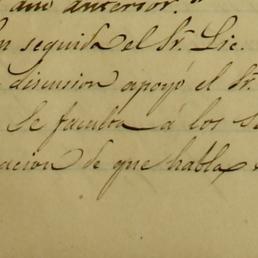 año anterior."
n seguida el Sr. Lic.
discusion apoyó el Sr.
Se faculta á los S
acion de que habla